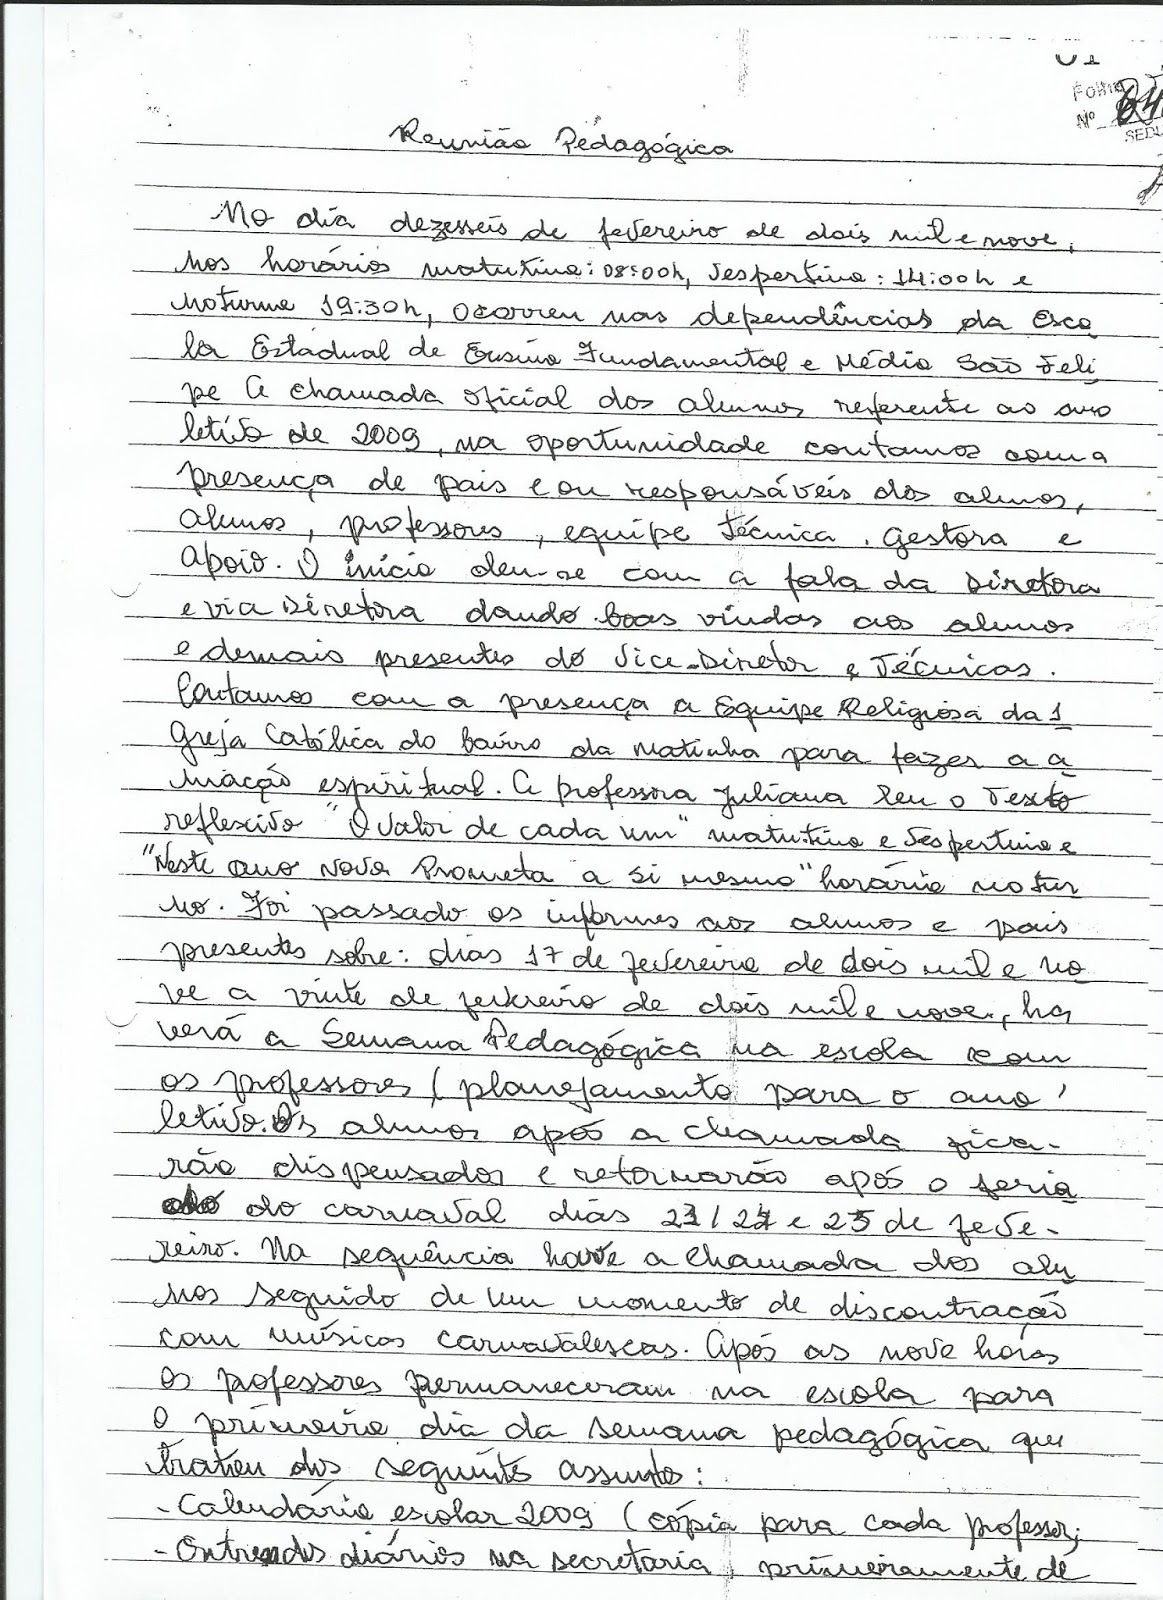 01
Folha
Nº 04
SEDU
Reunião Pedagógica
No dia dezesseis de fevereiro de dois mil e nove,
nos horários matutino: 08:00h, Vespertino: 14:00h e
Noturno 19:30h, ocorreu nas dependências da Esco
la Estadual de Ensino Fundamental e Médio São Feli
pe a chamada oficial dos alunos referente ao ano
letivo de 2009, na oportunidade contamos com a
presença de pais e ou responsáveis dos alunos,
alunos, professores, equipe técnica, gestora e
apoio. O início deu-se com a fala da Diretora
e via Diretora dando boas vindas aos alunos
e demais presentes do Vice-Diretor e Técnicas.
Contamos com a presença a Equipe Religiosa da I
greja Católica do bairro da matinha para fazer a a
nimação espiritual. A professora Juliana leu o Texto
reflexivo "O valor de cada um" matutino e Vespertino e
"Neste ano novo Prometa a si mesmo" horário notur
no. Foi passado os informes aos alunos e pais
presentes sobre: dias 17 de fevereiro de dois mil e no
ve a vinte de fevereiro de dois mil e nove, ha
verá a Semana Pedagógica na escola com
os professores (planejamento para o ano
letivo. Os alunos após a chamada fica-
rão dispensados e retornarão após o feria
do carnaval dias 23/24 e 25 de feve-
reiro. Na sequência houve a chamada dos alu
nos seguido de um momento de discontração
com músicas carnavalescas. Após as nove horas
os professores permaneceram na escola para
o primeiro dia da semana pedagógica que
tratou dos seguintes assuntos:
- Calendário escolar 2009 (cópia para cada professor;
- diários na secretaria, primeiramente de